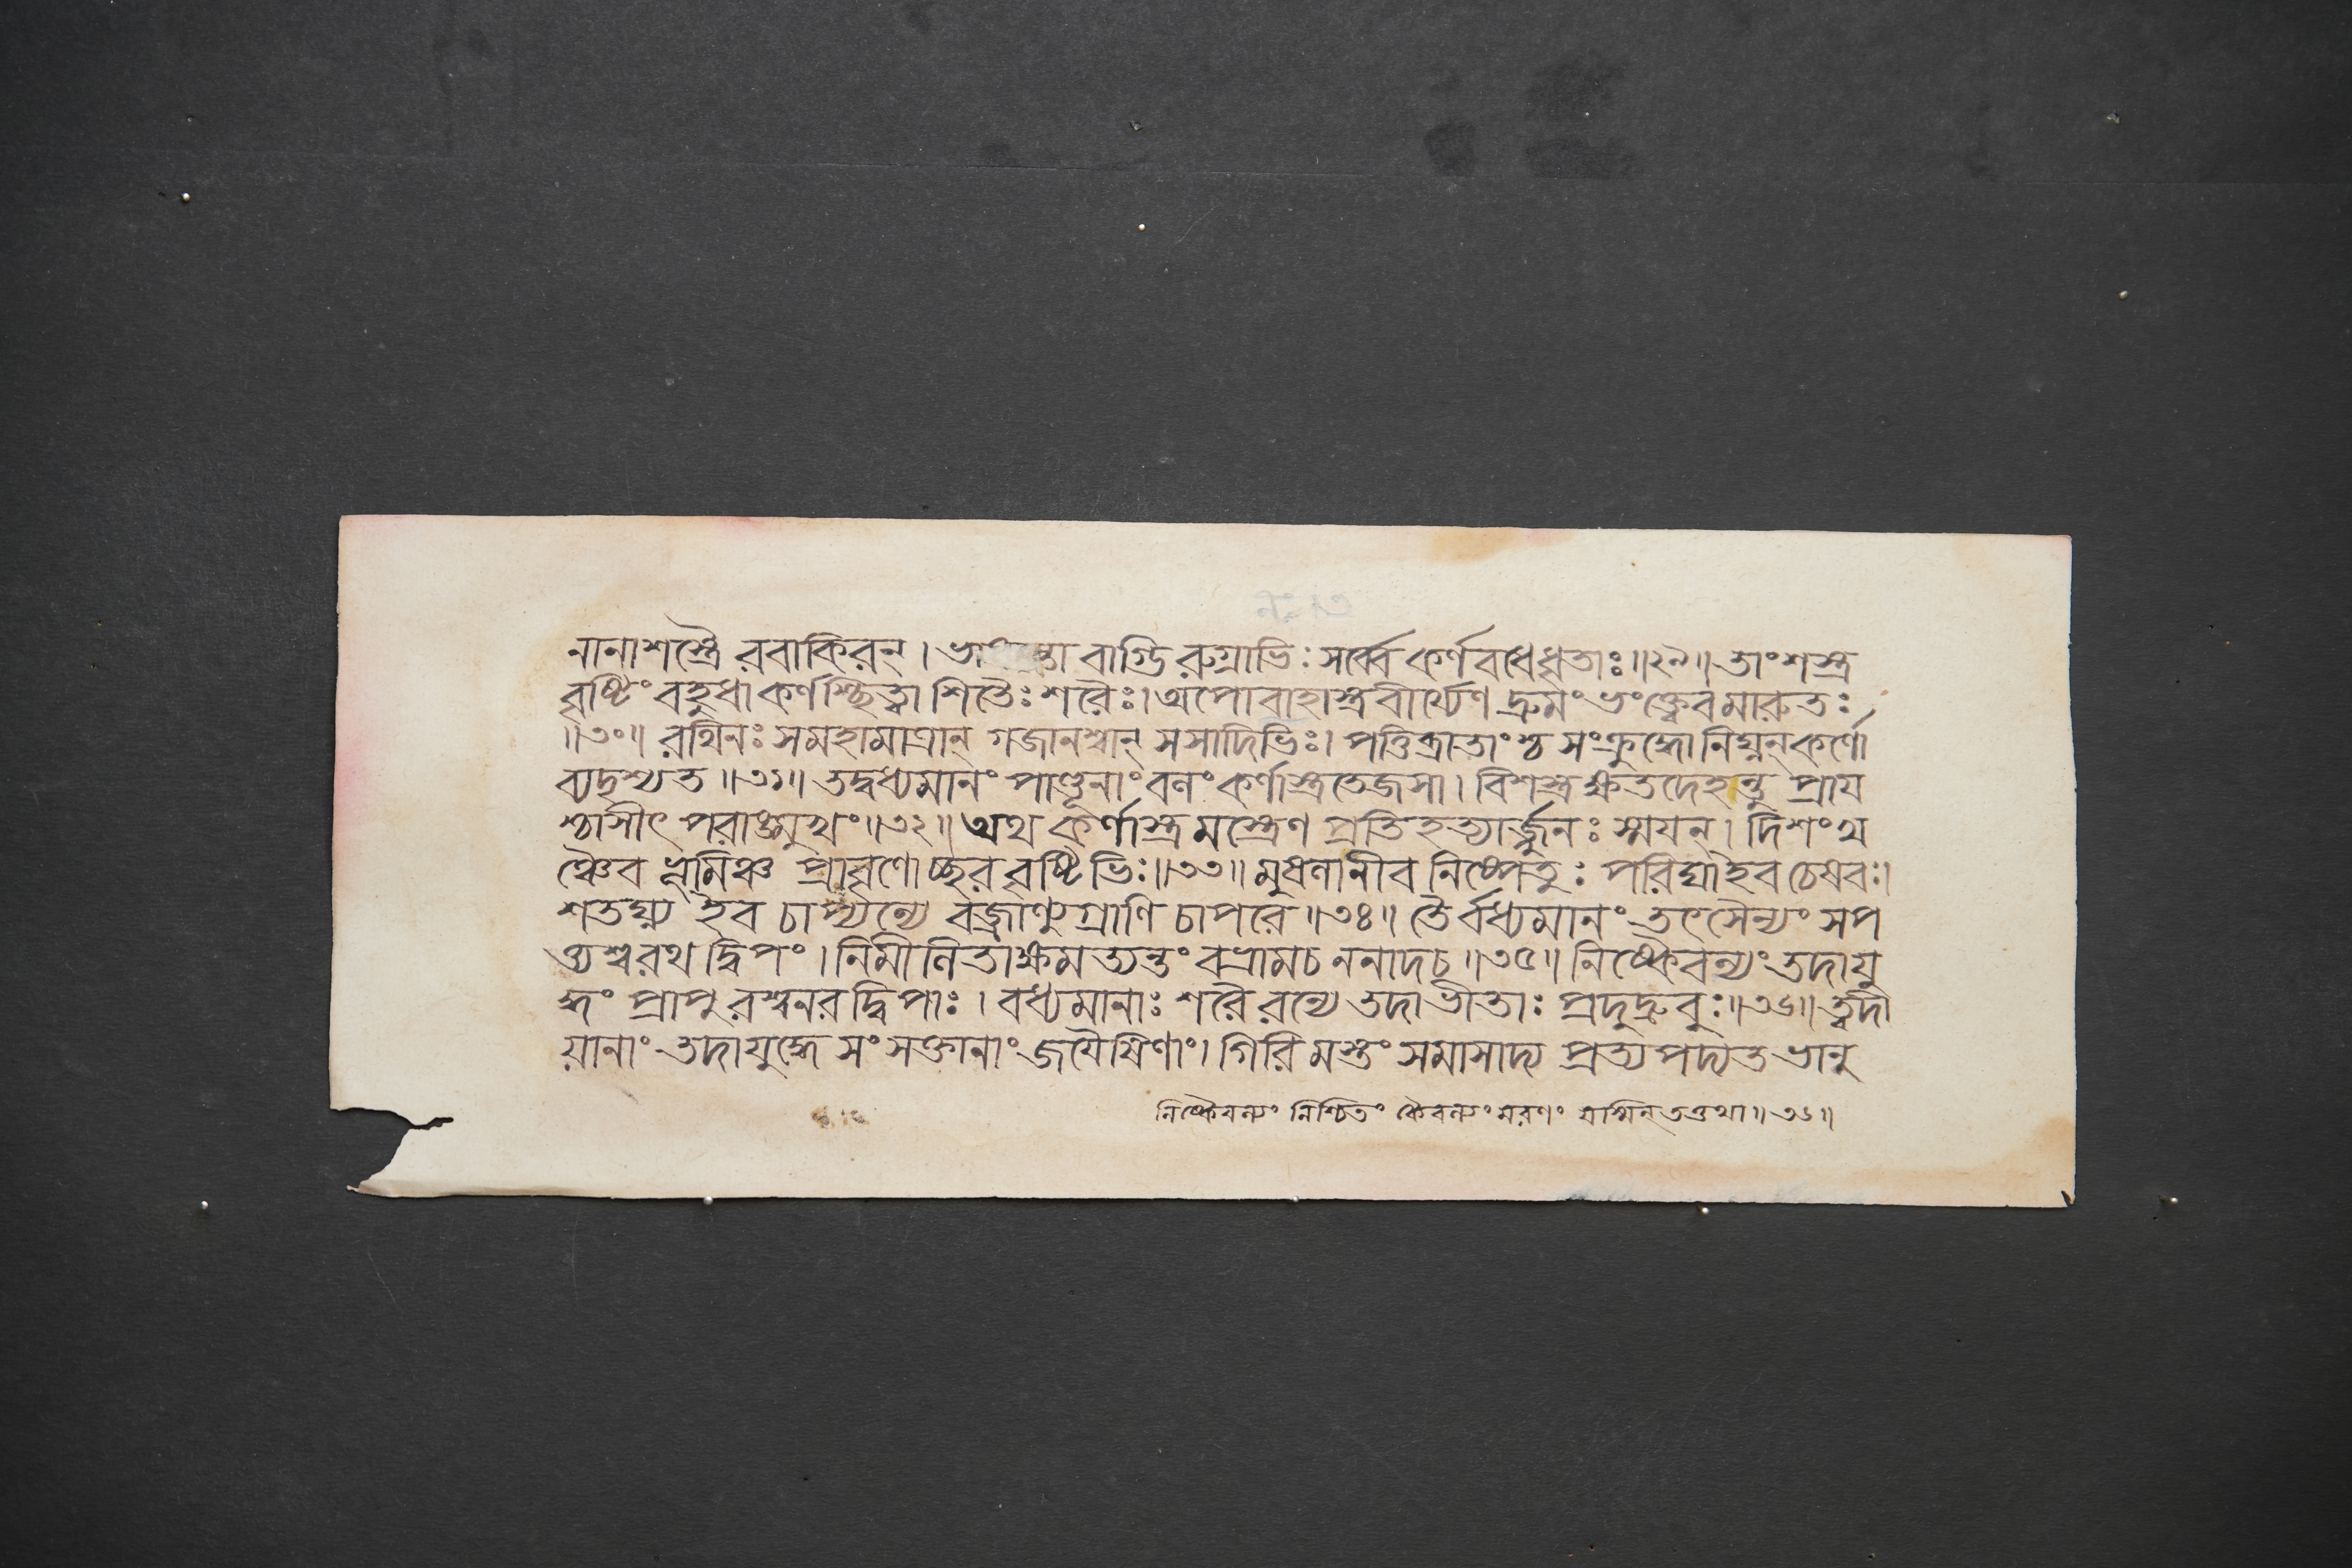 নানাশস্ত্রৈ রবাকিরন্। ভা বাগ্ভি রুগ্রাভিঃ সর্ব্বে কর্ণবধেধৃতাঃ॥২৯॥ তাং শস্ত্র
বৃষ্টিং বহুধা কর্ণশ্ছিত্বা শিতৈঃ শরৈঃ। অপোবাহাস্ত্রবীর্য্যেণ দ্রুমং ভংক্ত্বেব মারুতঃ
॥৩০॥ রথিনঃ সমহামাত্রান্ গজানশ্বান্ সসাদিভিঃ। পত্তিব্রাতাংশ্চ সংক্রুদ্ধো নিঘ্নন্ কর্ণো
ব্যদৃশ্যত॥৩১॥ তদ্বধ্যমানং পাণ্ডূনাং বলং কর্ণাস্ত্রতেজসা। বিশস্ত্রক্ষতদেহন্তু প্রায
শ্চাসীৎ পরাঙ্মুখং॥৩২॥ অথ কর্ণাস্ত্র মস্ত্রেণ প্রতিহত্যার্জ্জুনঃ স্ময়ন্। দিশং খ
ঞ্চৈব ভূমিঞ্চ প্রাবৃণোচ্ছর বৃষ্টিভিঃ॥৩৩॥ মুষলানীব নিষ্পেতুঃ পরিঘাইব চেষবঃ।
শতঘ্ন্য ইব চাপ্যন্যে বজ্রাণ্যুগ্রাণি চাপরে॥৩৪॥ তৈর্বধ্যমানং তৎসৈন্যং সপ
ত্ত্যশ্বরথ দ্বিপং। নিমীলিতাক্ষমত্যন্তং বভ্রামচ ননাদচ॥৩৫॥ নিষ্কৈবল্যং তদাযু
দ্ধং প্রাপু রশ্বনর দ্বিপাঃ। বধ্যমানাঃ শরৈ রন্যে তদাভীতাঃ প্রদুদ্রুবুঃ॥৩৬॥ ত্বদী
য়ানাং তদাযুদ্ধে সংসক্তানাং জয়ৈষিণাং। গিরি মস্তং সমাসাদ্য প্রত্য পদ্যত ভানু
নিষ্কৈবল্যং নিশ্চিতং কৈবল্যং মরণং যস্মিন্ তত্তথা॥৩৬॥